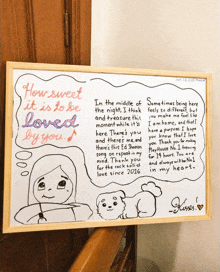 How sweet
it is to be
loved
by you
In the middle of
the night, I think
and treasure this
moment while it's
here. There's you
and there's me, and
there's this Ed Sheeran
song on repeat in my
mind. Thank you
for the rock solid
love since 2016
Sometimes being here
feels so different, but
you make me feel like
I am home, and that I
have a purpose. I hope
you know that I love
you. Thank you for making
Playhouse No. 1 teasing
for 19 hours. You are
and always will be No. 1
in my heart.